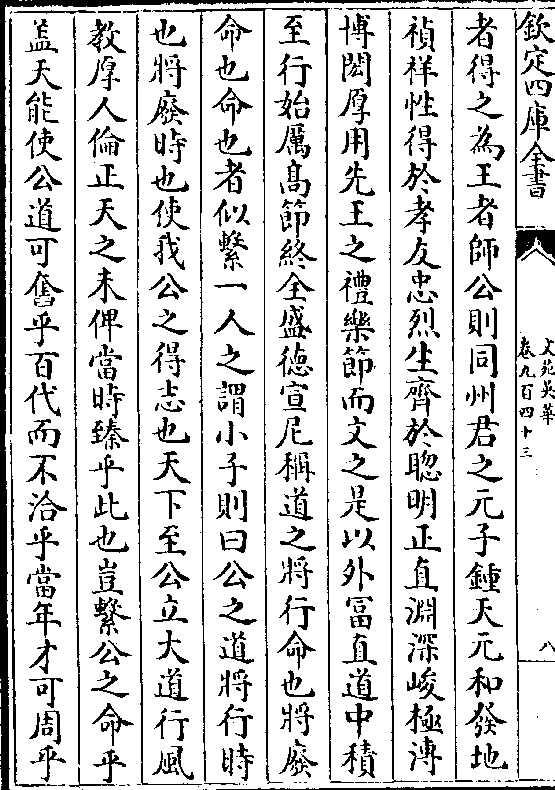 欽定四庫全書
文苑英華
卷九百四十三
八
者得之為王者師公則同州君之元子鍾天元和發地
禎祥性得於孝友忠烈生齊於聰明正直淵深峻極溥
博閎厚用先王之禮樂節而文之是以外冨直道中積
至行始厲髙節終全盛德宣尼稱道之將行命也將廢
命也命也者似繫一人之謂小子則曰公之道將行時
也將廢時也使我公之得志也天下至公立大道行風
教厚人倫正天之未俾當時臻乎此也豈繫公之命乎
盖天能使公道可舊乎百代而不洽乎當年才可周乎